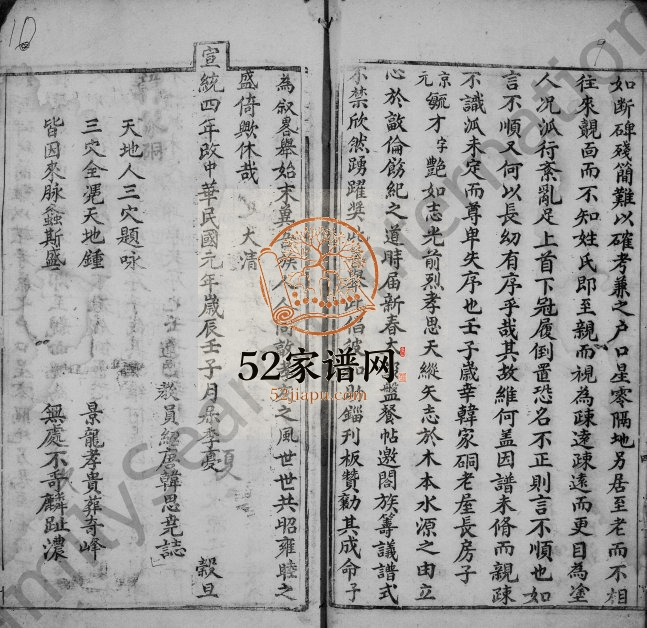 如斷碑殘簡難以確考兼之户口星零隔地另居至老而不相
往來覿面而不知姓氏即至親而視為疎遠疎遠而更目為塗
人况派行紊亂足上首下冠履倒置恐名不正則言不順也如
言不順又何以長幼有序乎哉其故維何盖因譜未脩而親疎
不識派未定而尊卑失序也壬子歳幸韓家硐老屋長房子
京毓才字艷如志光前烈孝思天縱矢志於木本水源之由立
心於敦倫飭紀之道時届新春 盤餐帖邀閤族籌議譜式
不禁欣然踴躍奬 錙刊板贊勷其成命子
為叙畧舉始末冀 族人人 敦 之風世世共昭雍睦之
盛倚歟休哉
大清
宣統四年改中華民國元年歳辰壬子月 李夏 榖旦
教員經 韓思堯誌
天地人三穴題咏
三穴全凴天地鍾 景龍孝貴葬奇峰
皆因來脉螽斯盛 無處不奇麟趾濃
10
9
52家谱网
52jiapu.com
FamilySearch International